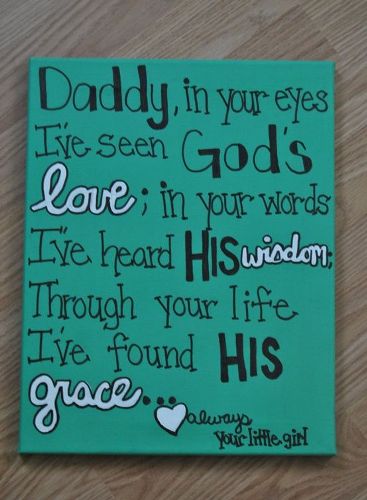 Daddy, in your eyes
I've seen God's
love; in your words
I've heard HIS wisdom;
Through your life
I've found HIS
grace...
always
your little girl